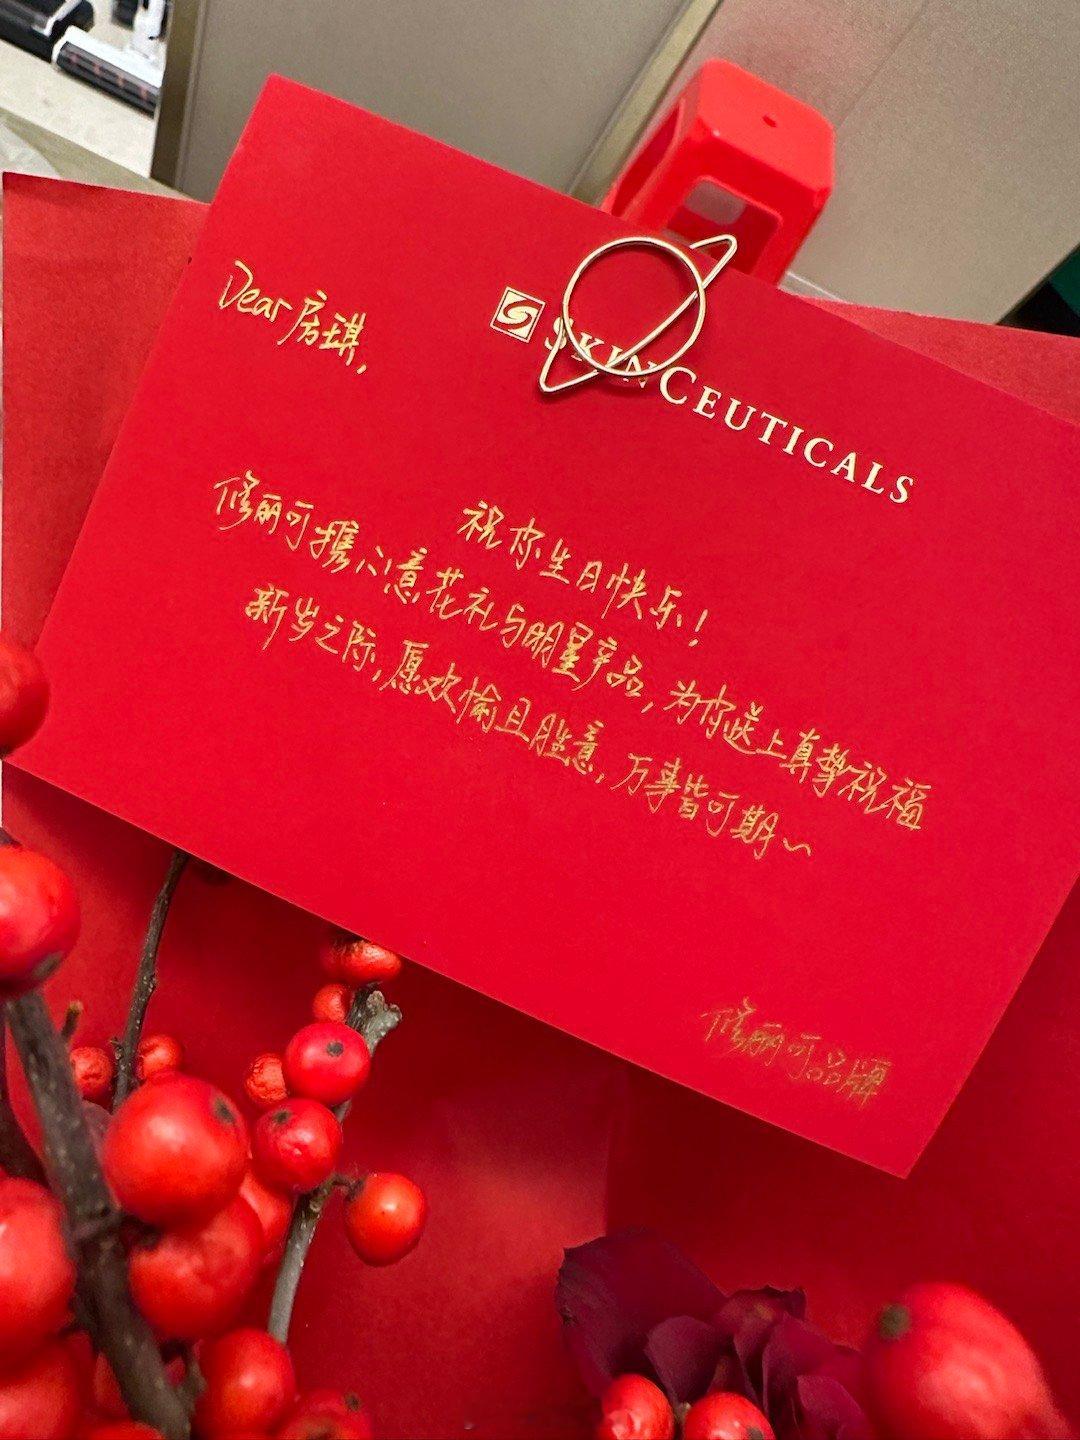 SKINCEUTICALS
Dear 房琪,
祝你生日快乐!
修丽可携心意花礼与明星产品,为你送上真挚祝福
新岁之际,愿欢愉且胜意,万事皆可期~
修丽可品牌